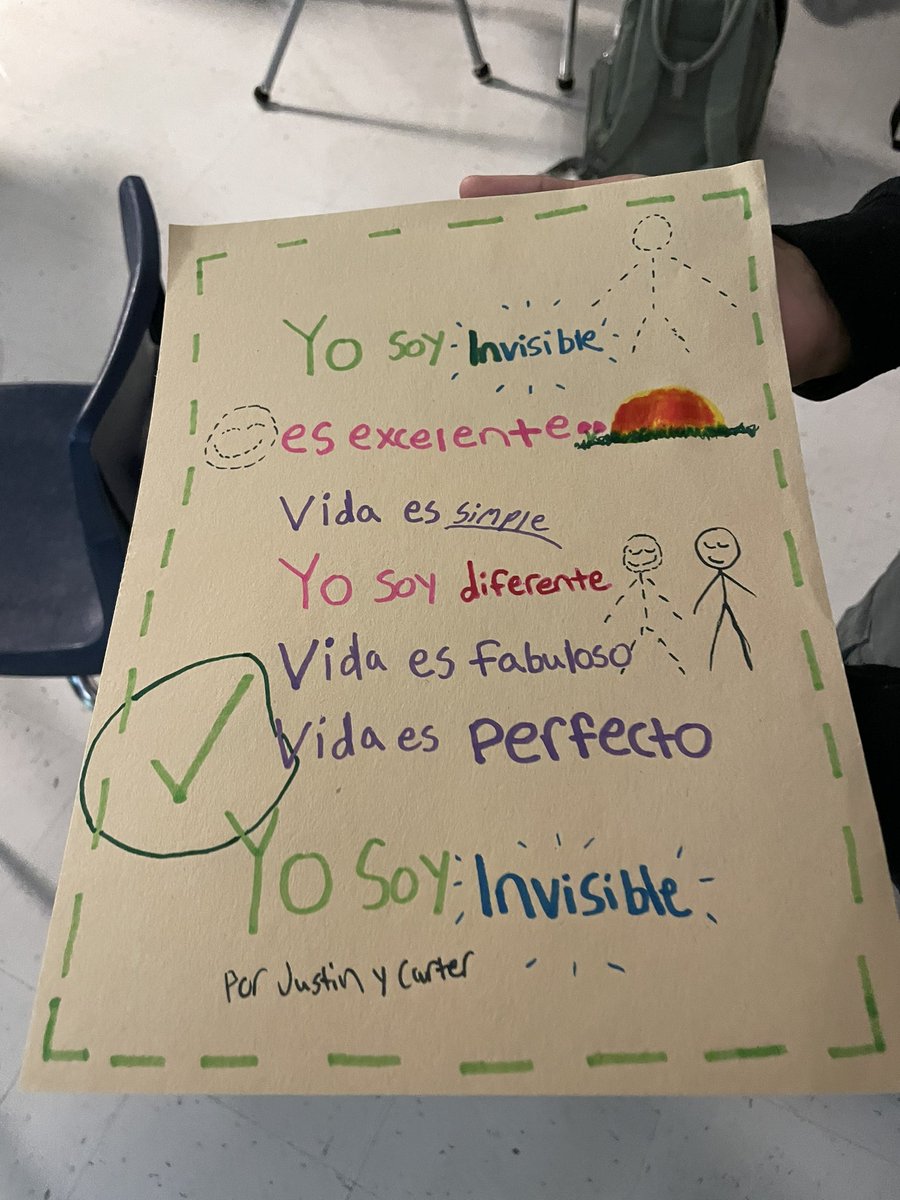 Yo soy Invisible
es excelente..
Vida es simple
Yo soy diferente
Vida es fabuloso
Vida es perfecto
Yo soy Invisible
Por Justin y Carter